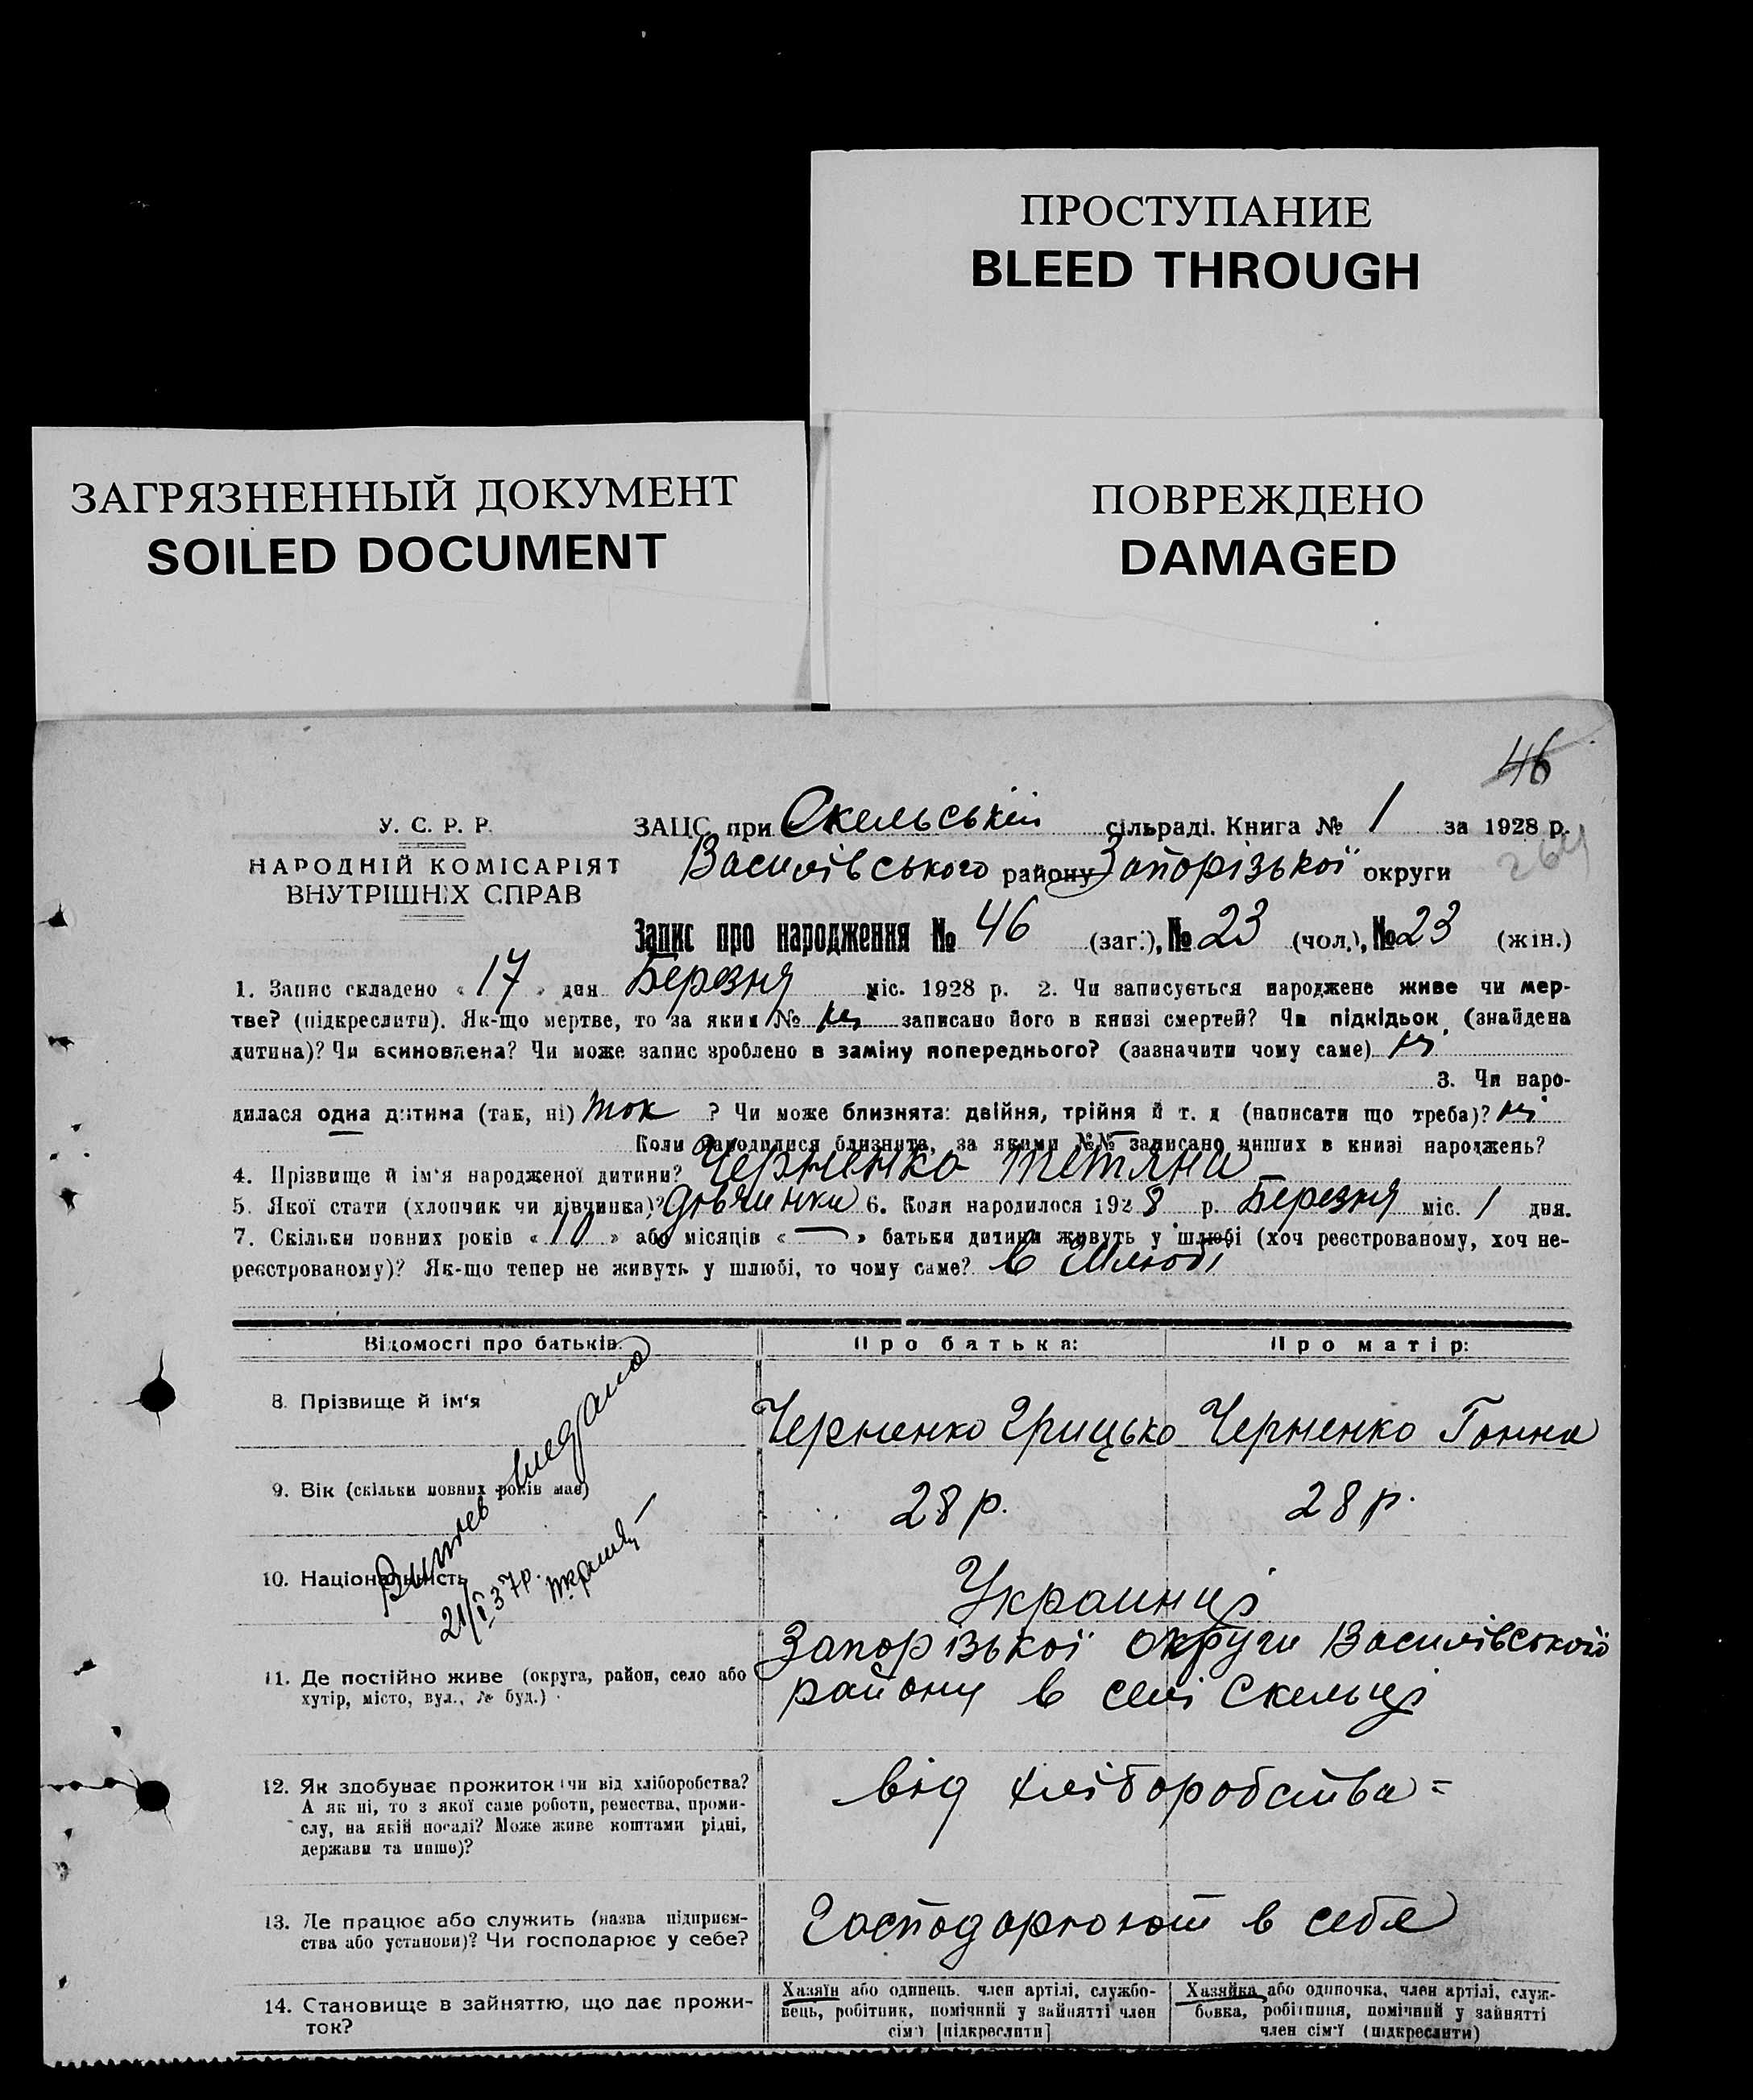 ПРОСТУПАНИЕ
BLEED THROUGH
ЗАГРЯЗНЕННЫЙ ДОКУМЕНТ
SOILED DOCUMENT
ПОВРЕЖДЕНО
DAMAGED
46
У. С. Р. Р.
НАРОДНІЙ КОМІСАРІЯТ
ВНУТРІШНІХ СПРАВ
ЗАЦС при Скельській сільраді. Книга № 1 за 1928 р.
Василівського району Запорізької округи
264
Запис про народження № 46 (заг.), № 23 (чол.), № 23 (жін.)
1. Запис складено « 17 » дня Березня міс. 1928 р. 2. Чи записується народжене живе чи мер-
тве? (підкреслити). Як-що мертве, то за яким № ні записано його в книзі смертей? Чи підкідьок (знайдена
дитина)? Чи всиновлена? Чи може запис зроблено в заміну попереднього? (зазначити чому саме) ні
3. Чи наро-
дилася одна дитина (так, ні) так ? Чи може близнята: двійня, трійня й т. д (написати що треба)? ні
Коли народилися близнята, за якими №№ записано инших в книзі народжень?
4. Прізвище й ім'я народженої дитини? Черненко Тетяни
5. Якої стати (хлопчик чи дівчинка)? дівчинки 6. Коли народилося 1928 р. Березня міс. 1 дня.
7. Скільки повних років « 10 » або місяців « — » батьки дитини живуть у шлюбі (хоч реєстрованому, хоч не-
реєстрованому)? Як-що тепер не живуть у шлюбі, то чому саме? в Шлюбі
Відомості про батьків:
Про батька:
Про матір:
8. Прізвище й ім'я
Черненко Грицько
Черненко Ганна
9. Вік (скільки повних років має)
28 р.
28 р.
10. Національність
Украинці
21/I 37р.
11. Де постійно живе (округа, район, село або
хутір, місто, вул., № буд.)
Запорізької округи Василівського
району в селі Скельці
12. Як здобуває прожиток: чи від хліборобства?
А як ні, то з якої саме роботи, ремества, проми-
слу, на якій посаді? Може живе коштами рідні,
держави та инше)?
від хліборобства =
13. Де працює або служить (назва підприєм-
ства або установи)? Чи господарює у себе?
Господарюють в себе
14. Становище в зайняттю, що дає прожи-
ток?
Хазяїн або одинець, член артілі, службо-
вець, робітник, помічний у зайнятті член
сім'ї [підкреслити]
Хазяйка або одиночка, член артілі, служ-
бовка, робітниця, помічний у зайнятті
член сім'ї (підкреслити)